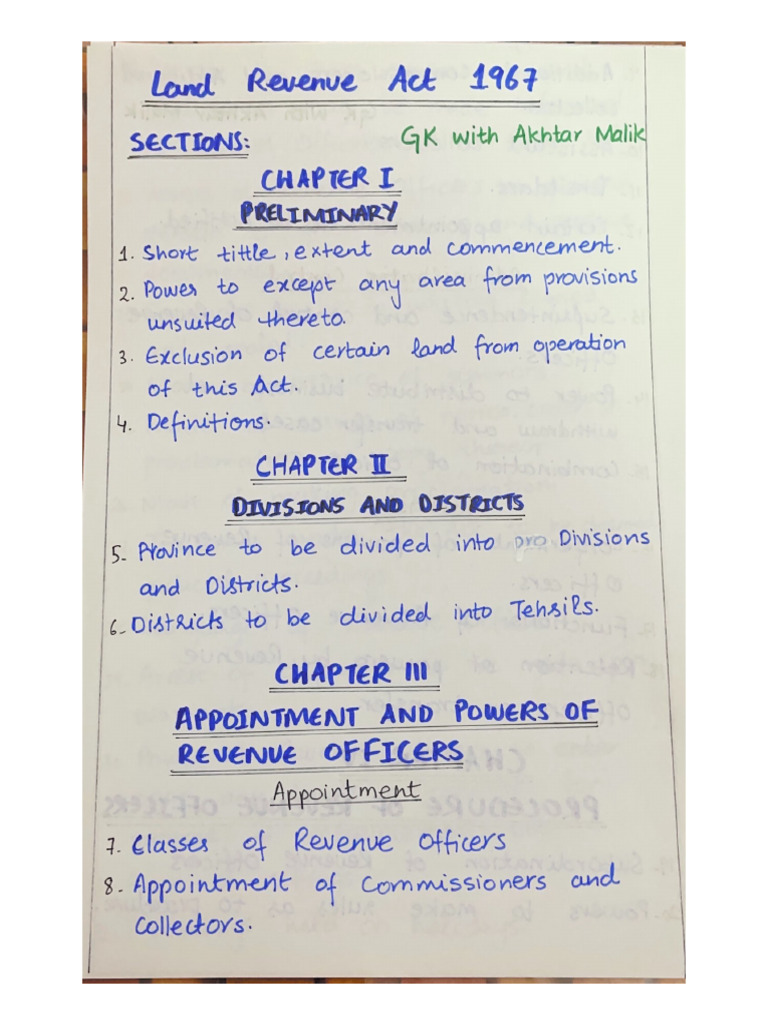 Land Revenue Act 1967
SECTIONS: GK with Akhtar Malik
CHAPTER I
PRELIMINARY
1. Short tittle, extent and commencement.
2. Power to except any area from provisions
unsuited thereto.
3. Exclusion of certain land from operation
of this Act.
4. Definitions.
CHAPTER II
DIVISIONS AND DISTRICTS
5- Province to be divided into pro Divisions
and Districts.
6- Districts to be divided into Tehsils.
CHAPTER III
APPOINTMENT AND POWERS OF
REVENUE OFFICERS
Appointment
7. Classes of Revenue Officers
8. Appointment of Commissioners and
Collectors.